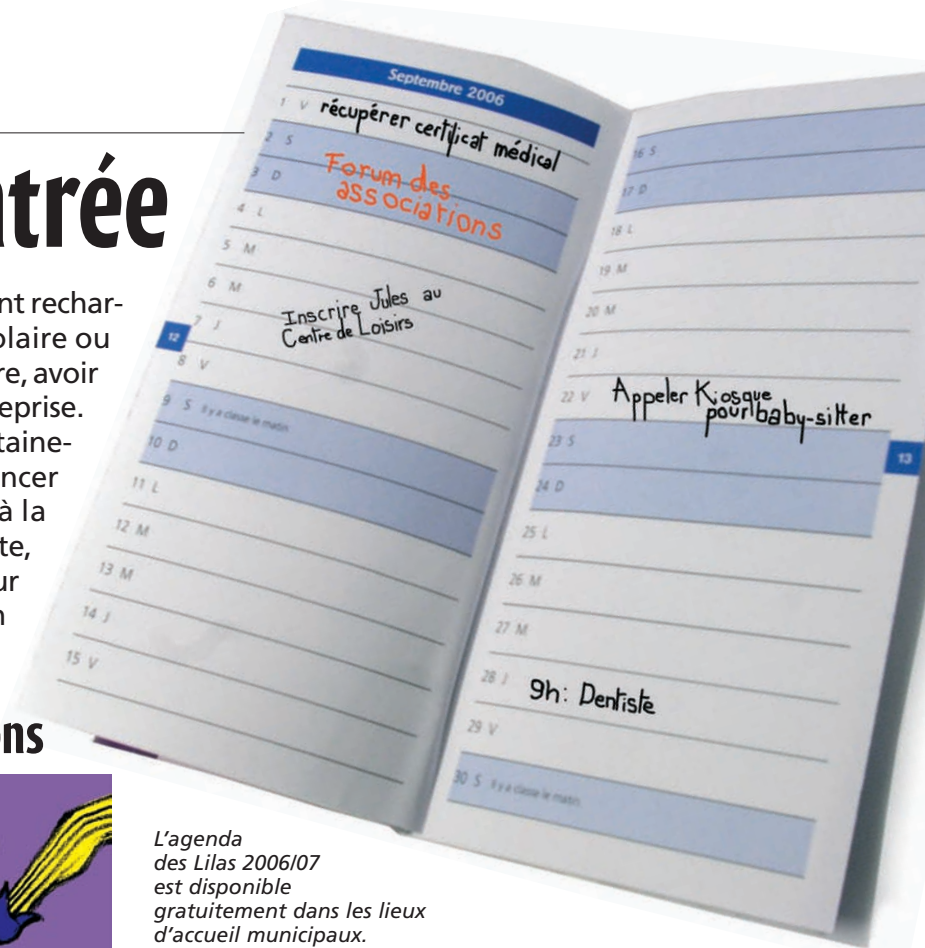 ntrée
nt rechar-
olaire ou
re, avoir
eprise.
taine-
ncer
à la
te,
ur
n
ns
Septembre 2006
1 V récupérer certificat médical
2 S
Forum des
3 D
associations
4 L
5 M
6 M
Inscrire Jules au
7 J
Centre de Loisirs
12
8 V
9 S Il y a classe le matin.
10 D
11 L
12 M
13 M
14 J
15 V
16 S
17 D
18 L
19 M
20 M
21 J
22 V Appeler Kiosque
pour baby-sitter
23 S
13
24 D
25 L
26 M
27 M
28 J 9h: Dentiste
29 V
30 S Il y a classe le matin.
L'agenda
des Lilas 2006/07
est disponible
gratuitement dans les lieux
d'accueil municipaux.